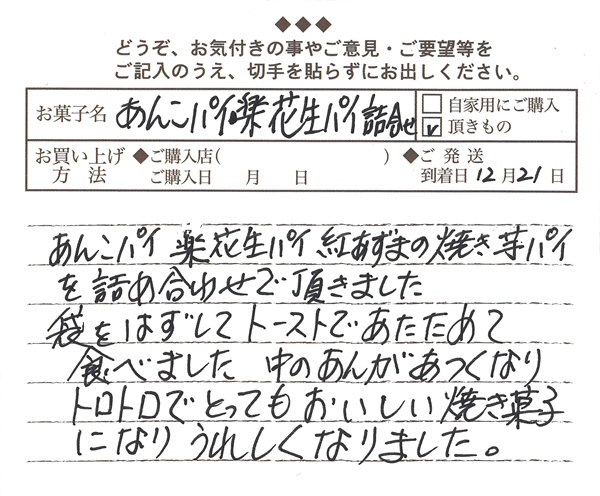 ◆◆◆
どうぞ、お気付きの事やご意見・ご要望等を
ご記入のうえ、切手を貼らずにお出しください。
お菓子名 あんこパイ 楽花生パイ 詰合せ □ 自家用にご購入
☑ 頂きもの
お買い上げ方法 ◆ご購入店( ) ◆ご発送
ご購入日 月 日 到着日 12月21日
あんこパイ 楽花生パイ 紅あずまの焼き芋パイ
を詰め合わせで頂きました
袋をはずしてトーストであたためて
食べました 中のあんがあつくなり
トロトロでとってもおいしい焼き菓子
になりうれしくなりました。